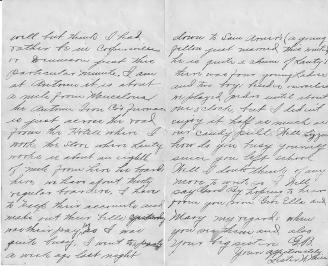 well but think I had
rather be in
or just this
particular minute. I am
at Antrim it is about
a mile from Mancelona
the Antrim Iron Co's furnace
is just across the road
from the Hotel where I
work the Store where
works is about an eighth
of mile from here
here we have about thirty
regular boarders. I have
to keep their accounts and
make out their bills yesterday
was their pay so I was
quite busy. I went to
a week ago last night
down to Sam (a young
fellow just married this
he is quite a chum of
there was four young ladies
and two boys besides ourselves
we played pedro until about
one o'clock, but I did not
enjoy it half as much as
our candy pull. Well
how do you busy yourself
since you left school
Well I don't think of any
more to write so I will
say Good by hoping to hear
from you soon Give Ella and
Mary my regards when
you see them and also
your big sister
Yours affectionately